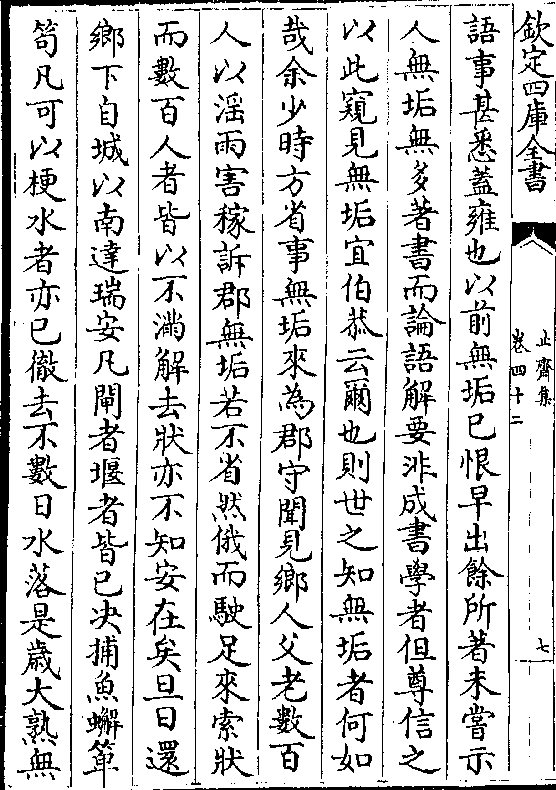 欽定四庫全書
止齋集
卷四十二
七
語事甚悉蓋雍也以前無垢已恨早出餘所著未嘗示
人無垢無多著書而論語解要非成書學者但尊信之
以此窺見無垢宜伯恭云爾也則世之知無垢者何如
哉余少時方省事無垢來為郡守聞見鄉人父老數百
人以淫雨害稼訴郡無垢若不省然俄而駛足來索狀
而數百人者皆以不滿解去狀亦不知安在矣旦日還
鄉下自城以南達瑞安凡閘者堰者皆已决捕魚蠏簞
笱凡可以梗水者亦已徹去不數日水落是歲大熟無